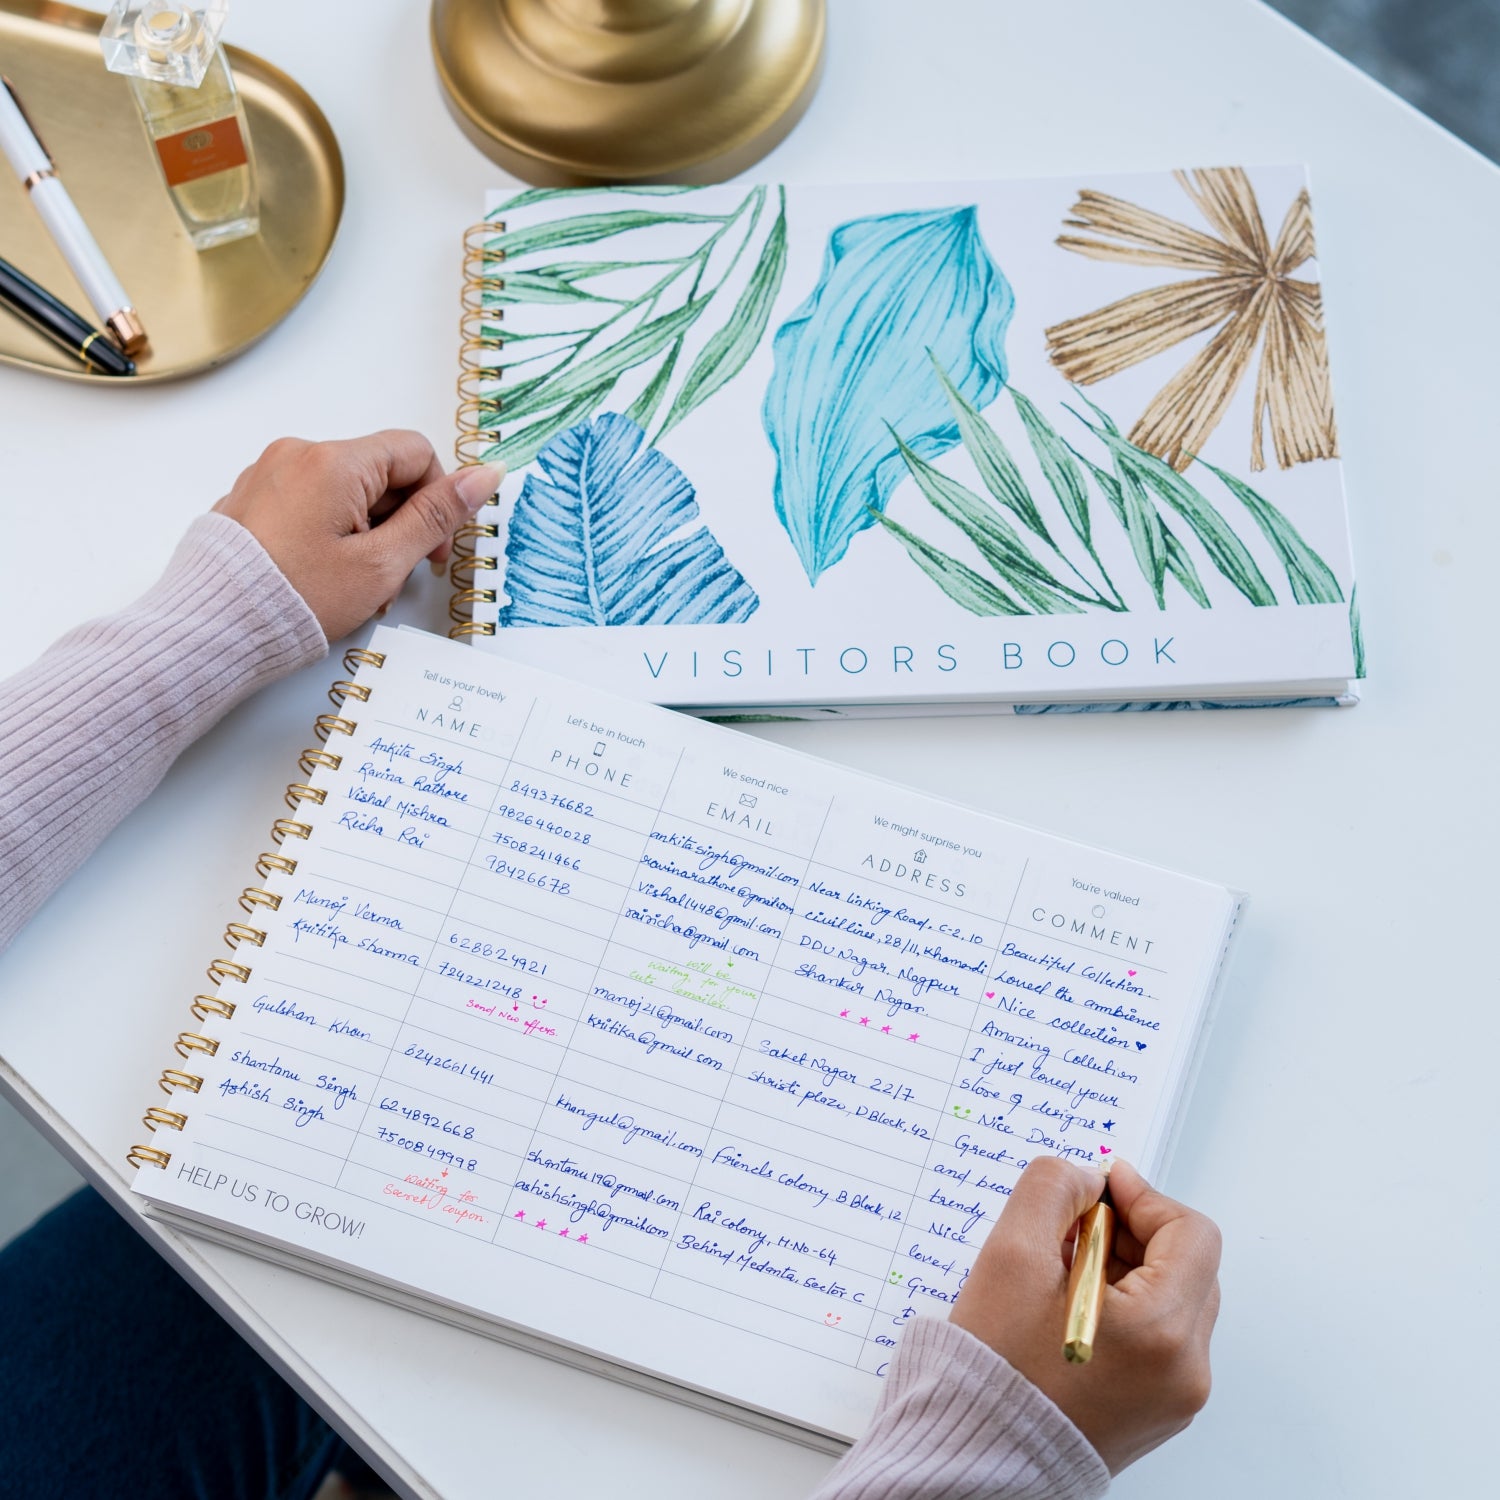 VISITORS BOOK
Tell us your lovely
NAME
Let's be in touch
PHONE
We send nice
EMAIL
We might surprise you
ADDRESS
You're valued
COMMENT
Ankita Singh
Ravina Rathore
Vishal Mishra
Richa Rai
Manoj Verma
Kritika Sharma
Gulshan Khan
Shantanu Singh
Ashish Singh
849376682
9826440028
7508241466
98426678
628824921
724221248
Send New offers.
8242661441
624892668
7500849998
Waiting for
Secret coupon.
ankitasingh@gmail.com
ravinarathore@gmail.com
Vishal1448@gmil.com
rairicha@gmail.com
will be
Waiting for your
cute emailer.
manoj21@gmail.com
kritika@gmail.com
khangul@gmail.com
shantanu19@gmail.com
ashishsingh@gmail.com
Near linking Road, C-2, 10
civil lines, 28/11, Khamardi
DDU Nagar, Nagpur
Shankar Nagar.
Saket Nagar 22/7
Shristi plaza, D Block, 42
Friends colony, B Block, 12
Rai colony, H.No-64
Behind Medanta, Sector C
Beautiful Collection.
Loved the ambience
Nice collection
Amazing Collection
I just loved your
store & designs
Nice Designs
Great a
and beca
trendy
Nice
loved y
Great
an
HELP US TO GROW!